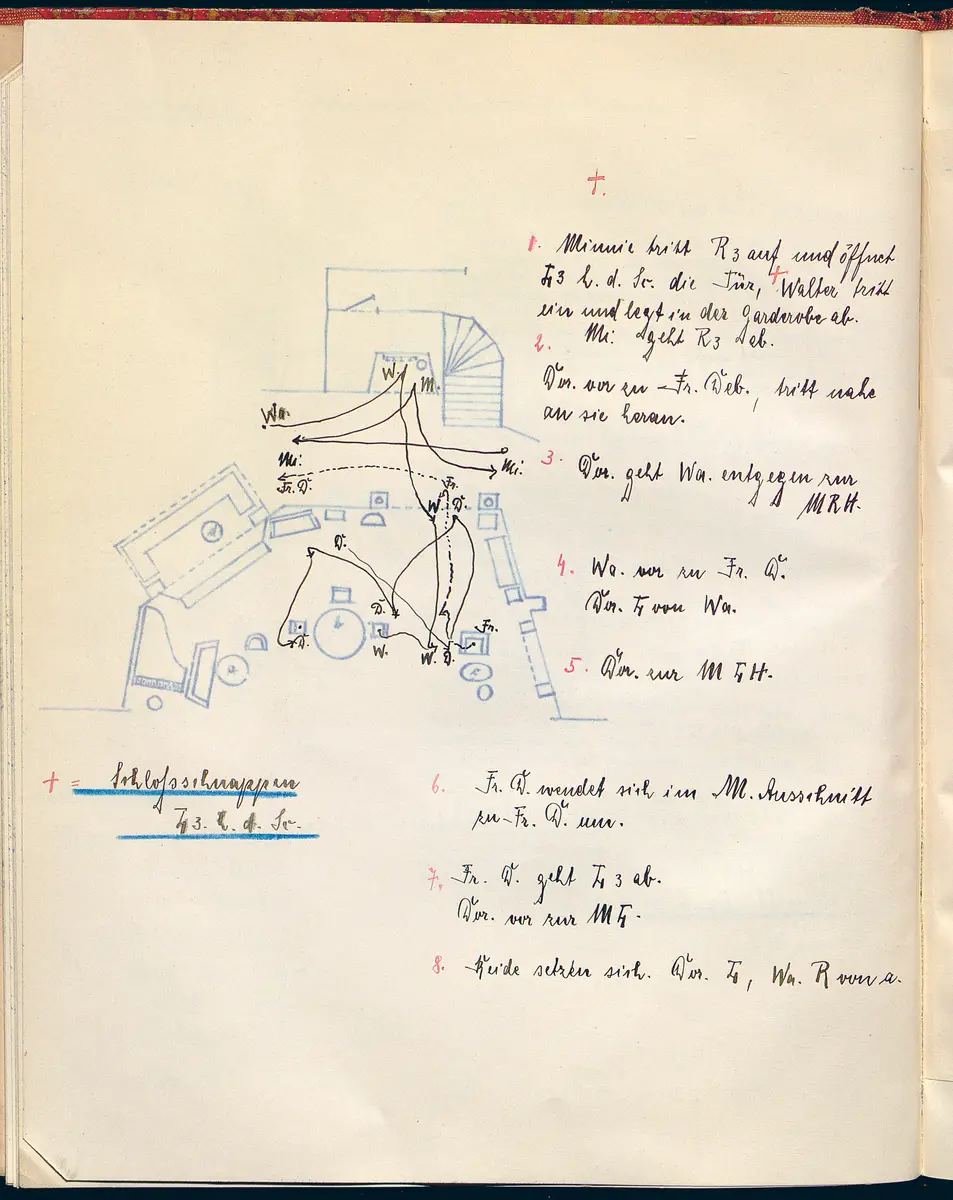 †.
1. Minnie tritt R 3 auf und öffnet
L 3 h. d. Sc. die Tür, + Walter tritt
ein und legt in der Garderobe ab.
2. Mi. geht R 3 ab.
Dor. vor zu Fr. Deb., tritt nahe
an sie heran.
3. Dor. geht Wa. entgegen zur
MRH.
4. Wa. vor zu Fr. D.
Dor. L von Wa.
5. Dor. zur M L H.
W. M.
Wa.
Mi. Mi.
Fr. D. Fr.
W. D.
D.
D.
D. W. W. D. Fr.
a
+ = Schloßschnappen
L 3. h. d. Sc.
6. Fr. D. wendet sich im M. Ausschnitt
zu Fr. D. um.
7. Fr. D. geht L 3 ab.
Dor. vor zur M L.
8. Beide setzen sich. Dor. L, Wa. R von a.